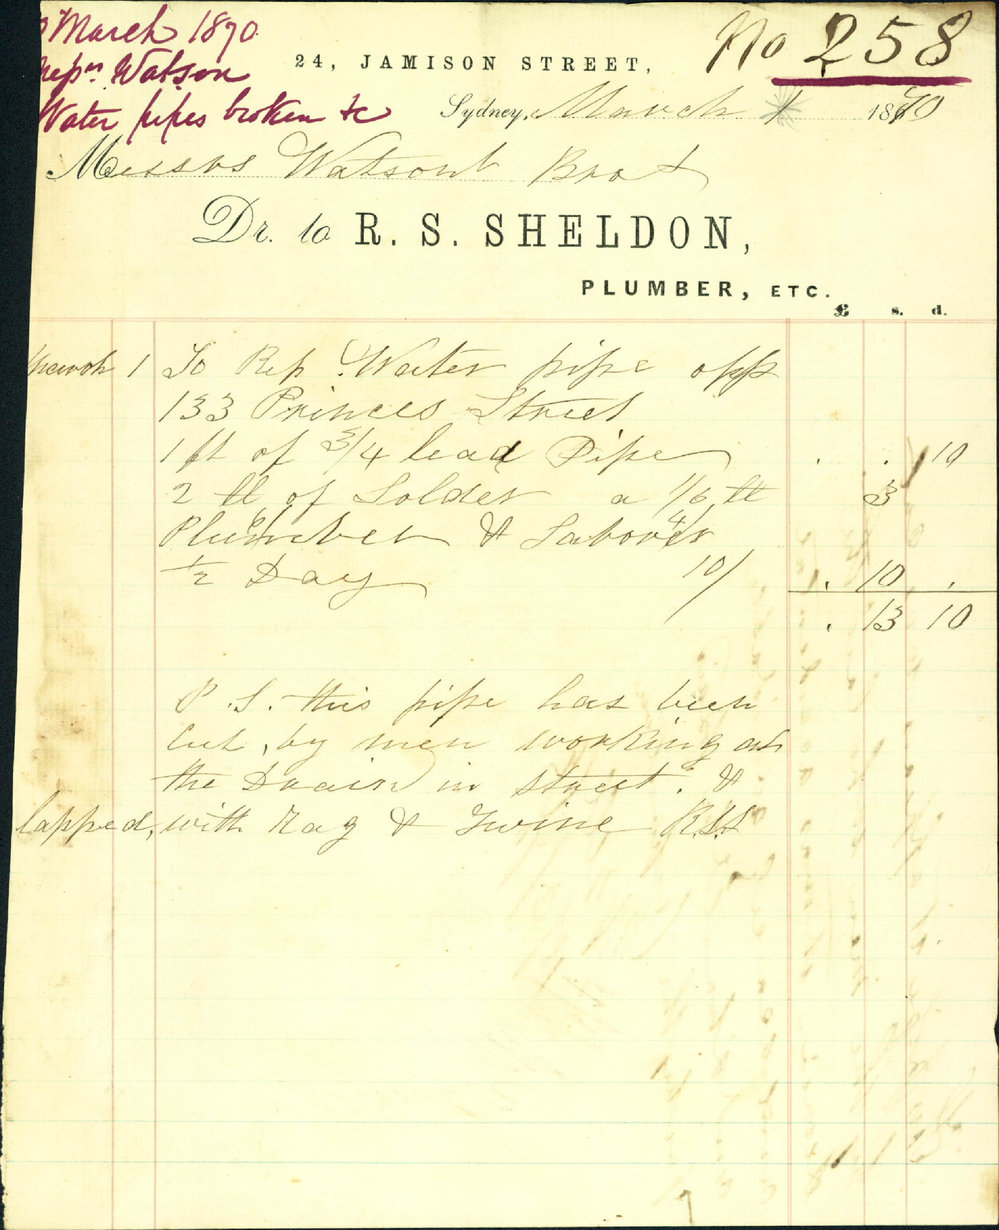 March 1870
Messrs Watson
Water pipes broken &c
No 258
24, JAMISON STREET,
Sydney, March 1 1870
Messrs Watson Bros
Dr. to R. S. SHELDON,
PLUMBER, ETC.
£ s. d.
March 1 To Rep Water pipe opp
133 Princes Street
1 ft of 3/4 lead Pipe . . 10
2 lb of Solder a 1/6 lb 3
Plumber & Laborer
1/2 Day 10/ . 10 .
. 13 10
P.S. this pipe has been
cut, by men working at
the Drain in street. &
lapped, with Rag & Twine R.S.S